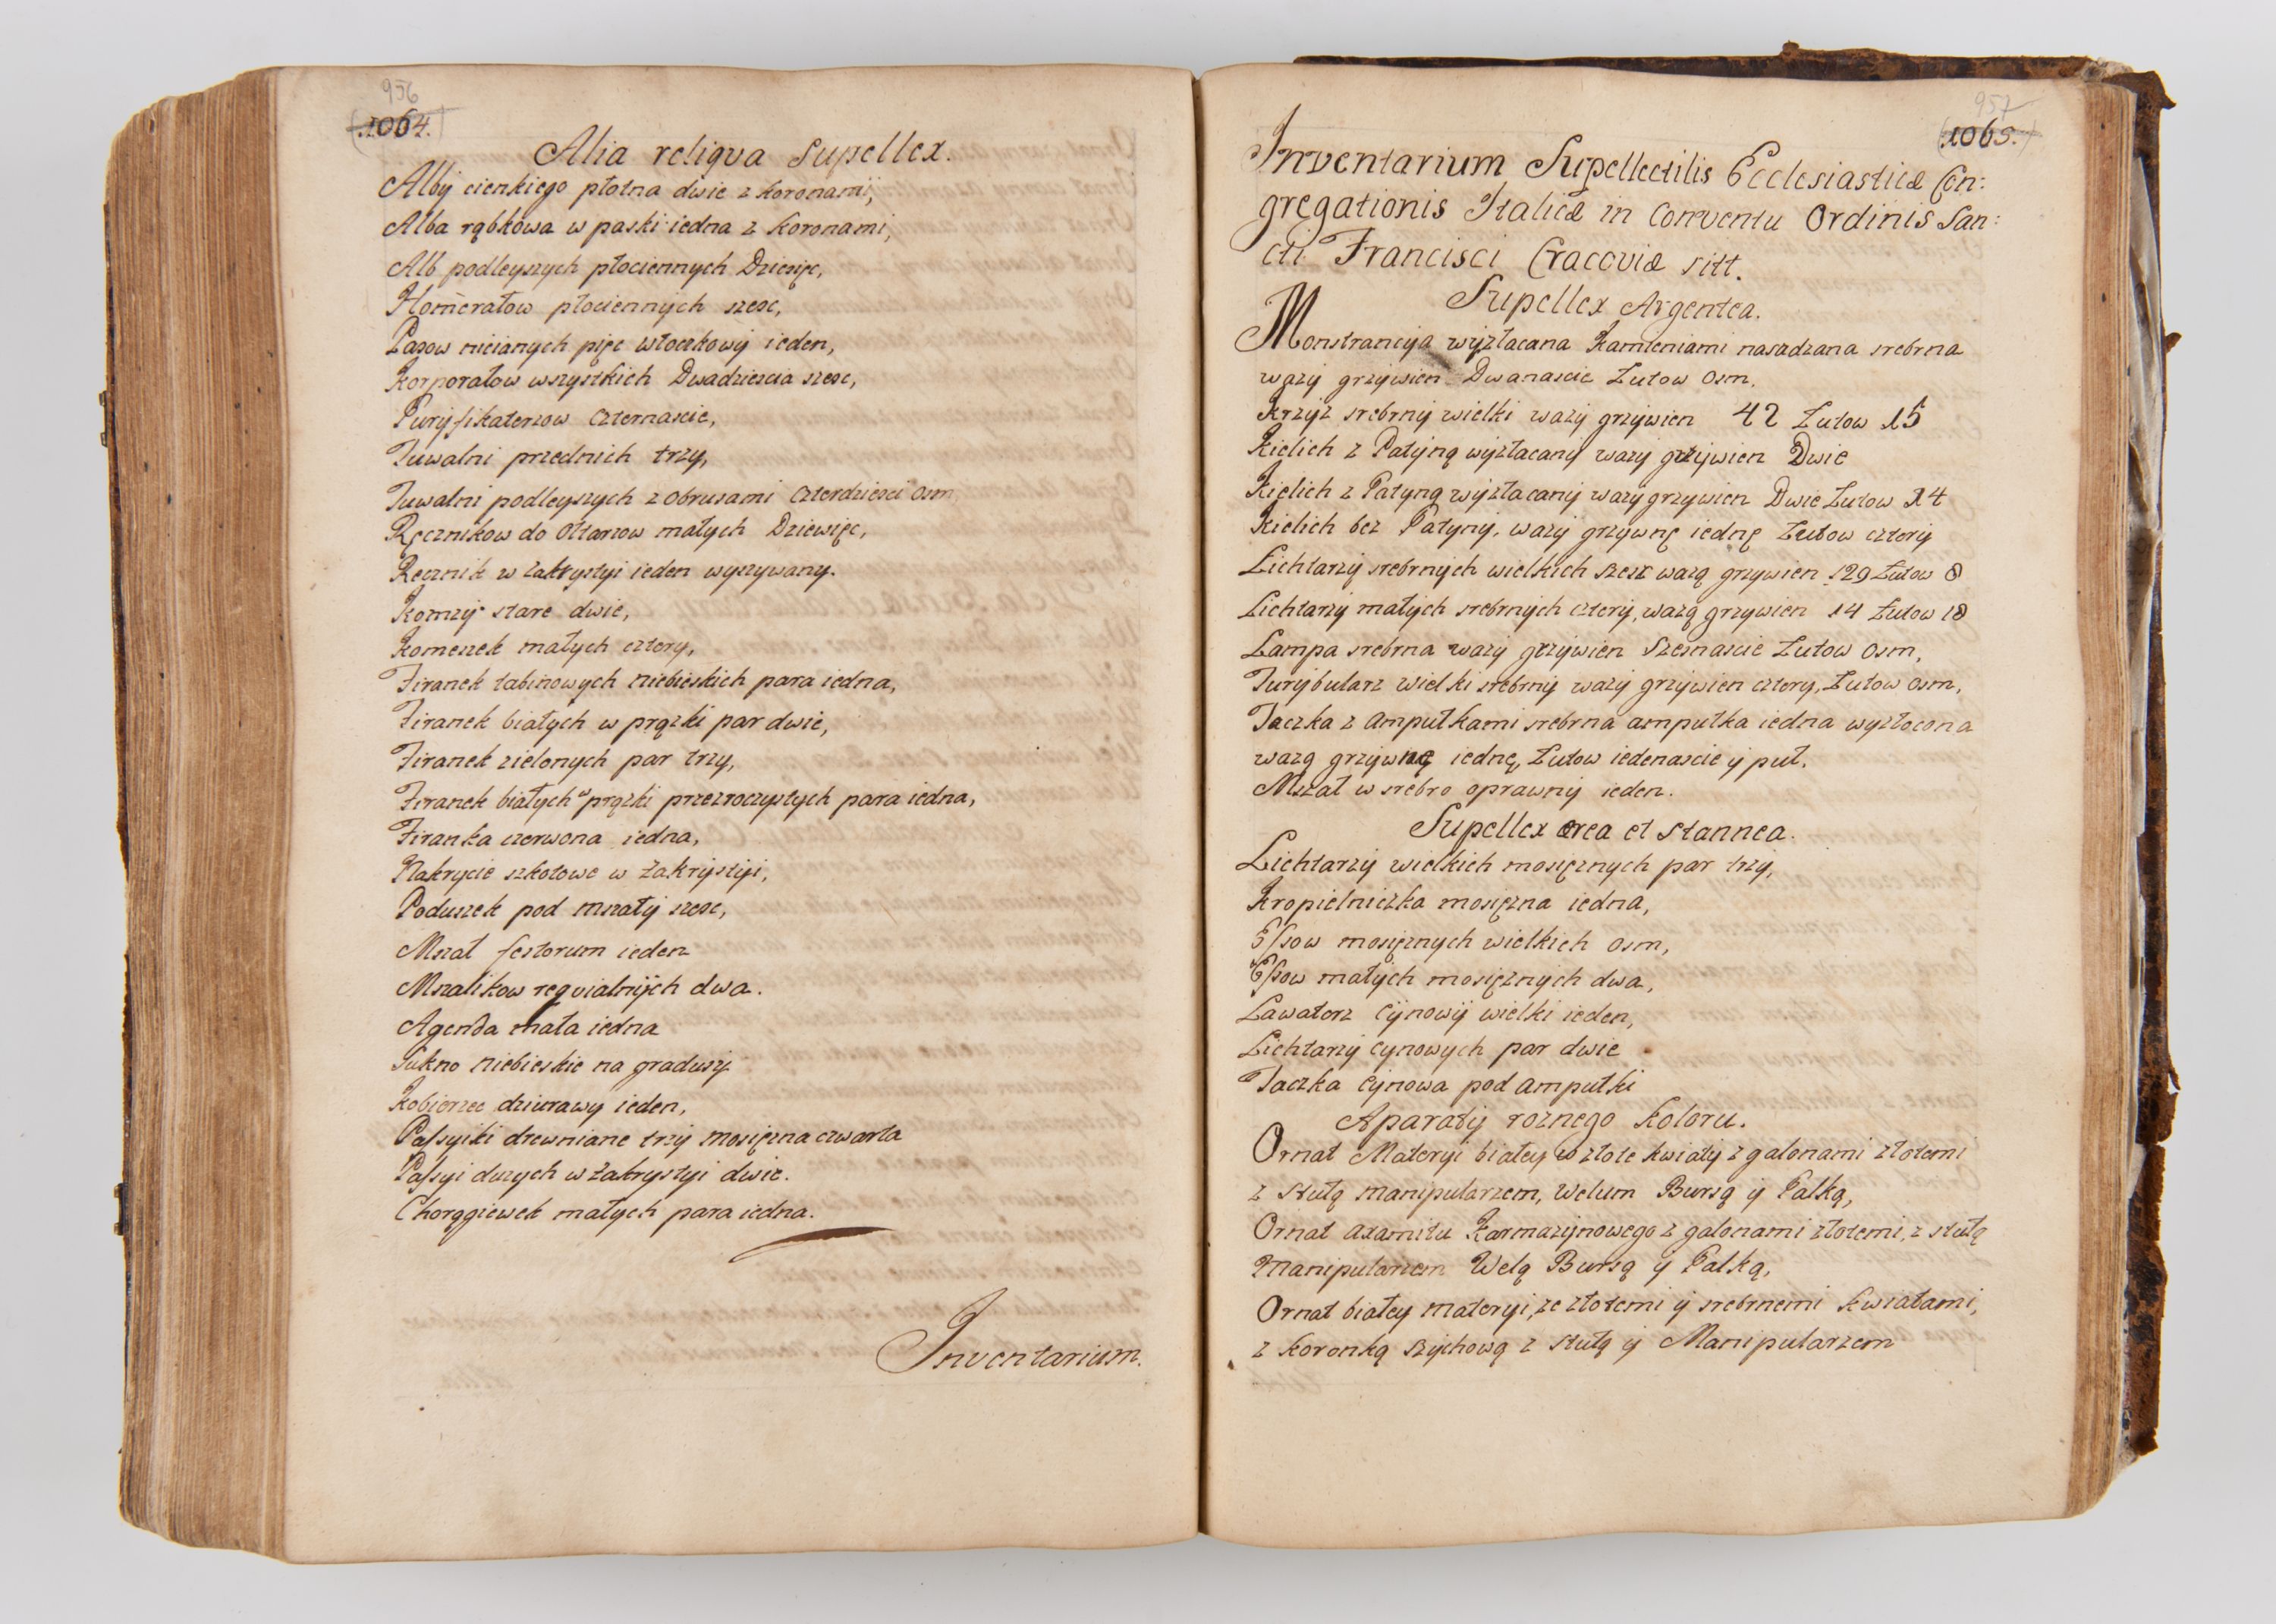 956
1064.
Alia reliqva Supellex.
Alby cienkiego płotna dwie z koronamij,
Alba rąbkowa w paski iedna z koronami,
Alb podleyszych płociennych Dziesięc,
Homerałow płociennych szesc,
Pasow nicianych pięc włoczkowy ieden,
Korporałow wszystkich Dwadziescia szesc,
Puryfikaterzow czternascie,
Tuwalni przednich trzy,
Tuwalni podleyszych z obrusami czterdziesci osm
Ręcznikow do Ołtarzow małych Dziewięc,
Ręcznik w zakrystyi ieden wyszywany.
Komzy stare dwie,
Komeszek małych cztory,
Firanek tabinowych niebieskich para iedna,
Firanek białych w prązki par dwie,
Firanek zielonych par trzy,
Firanek białych w prązki przezroczystych para iedna,
Firanka czerwona iedna,
Nakrycie szkotowe w zakrystyi,
Poduszek pod mszały szesc,
Mszał festorum ieden
Mszalikow reqvialnych dwa.
Agenda mała iedna
Sukno niebieskie na gradusy
Kobierzec dziurawy ieden,
Passyiki drewniane trzy mosięzna czwarta
Passyi duzych w zakrystyi dwie.
Chorągiewek małych para iedna.
Inventarium.
957
1065.
Inventarium Supellectilis Ecclesiasticæ Con:
gregationis Italicæ in Conventu Ordinis San:
cti Francisci Cracoviæ sitt.
Supellex Argentea.
Monstrancya wyzłacana Kamieniami nasadzana srebrna
wazy grzywien Dwanascie Łutow Osm.
Krzyz srebrny wielki wazy grzywien 42 Łutow 15
Kielich z Patyną wyzłacany wazy grzywien Dwie
Kielich z Patyną wyzłacany wazy grzywien Dwie Łutow 14
Kielich bez Patyny, wazy grzywnę iednę Łutow cztery
Lichtarzy srebrnych wielkich szesc wazą grzywien 129 Łutow 8
Lichtarzy małych srebrnych cztery, wazą grzywien 14 Łutow 18
Lampa srebrna wazy grzywien Szesnascie Łutow osm,
Turybularz wielki srebrny wazy grzywien cztery, Łutow osm,
Taczka z ampułkami srebrna ampułka iedna wyzłocona
wazą grzywnę iednę, Łutow iedenascie y puł.
Mszał w srebro oprawny ieden.
Supellex ærea et stannea.
Lichtarzy wielkich mosięznych par trzy,
Kropielniczka mosięzna iedna,
Essow mosięznych wielkich osm,
Essow małych mosięznych dwa,
Lawaterz Cynowy wielki ieden,
Lichtarzy Cynowych par dwie
Taczka Cynowa pod ampułki
Aparaty roznego koloru.
Ornat Materyi białey w złote kwiaty z galonami złotemi
z stułą manipularzem, Welum Bursą y Palką,
Ornat axamitu Karmazynowego z galonami złotemi, z stułą
Manipularzem Welą Bursą y Palką,
Ornat białey materyi, ze złotemi y srebrnemi kwiatami,
z koronką szychową z stułą y Manipularzem